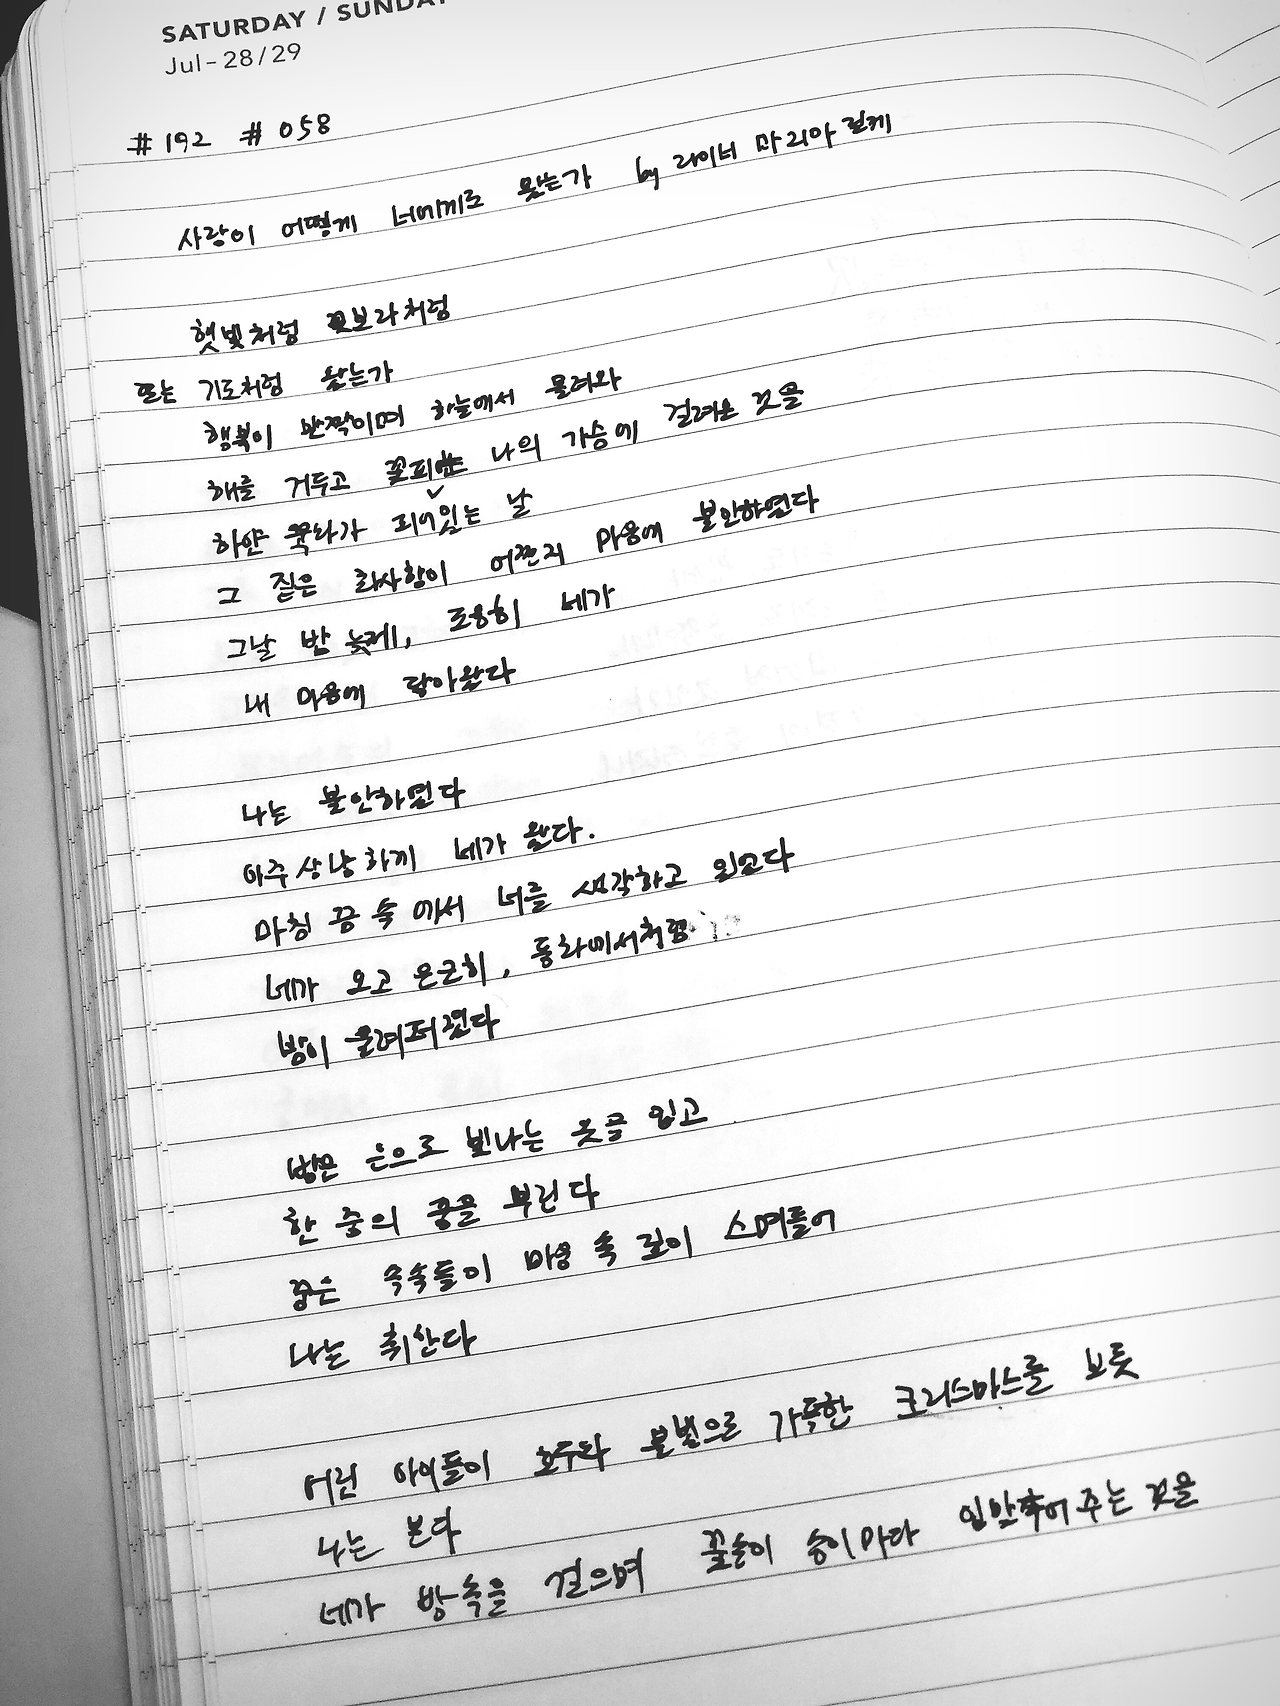 SATURDAY / SUNDAY
Jul-28/29
#192 #058
사랑이 어떻게 너에게로 왔는가 by 라이너 마리아 릴케
햇빛처럼 꽃보라처럼
또는 기도처럼 왔는가
행복이 반짝이며 하늘에서 몰려와
해를 거두고 꽃피는 나의 가슴에 걸려온 것을
하얀 국화가 피어있는 날
그 짙은 화사함이 어쩐지 마음에 불안하였다
그날 밤 늦게, 조용히 네가
내 마음에 닿아왔다
나는 불안하였다
아주 상냥하게 네가 왔다.
마침 꿈 속에서 너를 생각하고 있었다
네가 오고 은근히, 동화에서처럼
밤이 울려퍼졌다
밤은 은으로 빛나는 옷을 입고
한 줌의 꿈을 뿌린다
꿈은 속속들이 마음 속 깊이 스며들어
나는 취한다
어린 아이들이 호두와 불빛으로 가득한 크리스마스를 보듯
나는 본다
네가 밤속을 걸으며 꽃송이 송이마다 입맞춰어 주는 것을